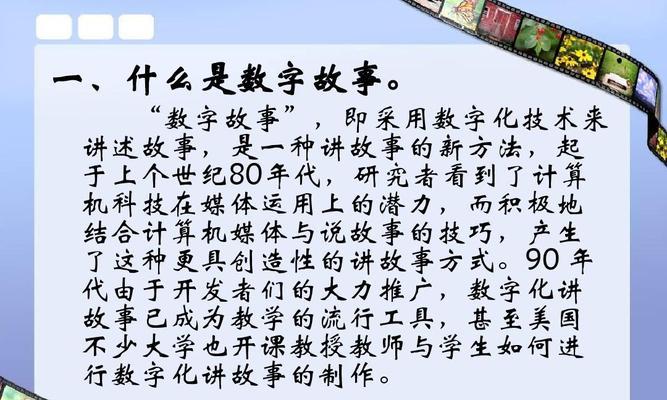 一、什么是数字故事。
“数字故事”，即采用数字化技术来
讲述故事，是一种讲故事的新方法，起
于上个世纪80年代，研究者看到了计算
机科技在媒体运用上的潜力，而积极地
结合计算机媒体与说故事的技巧，产生
了这种更具创造性的讲故事方式。90 年
代由于开发者们的大力推广，数字化讲
故事已成为教学的流行工具，甚至美国
不少大学也开课教授教师与学生如何进
行数字化讲故事的制作。